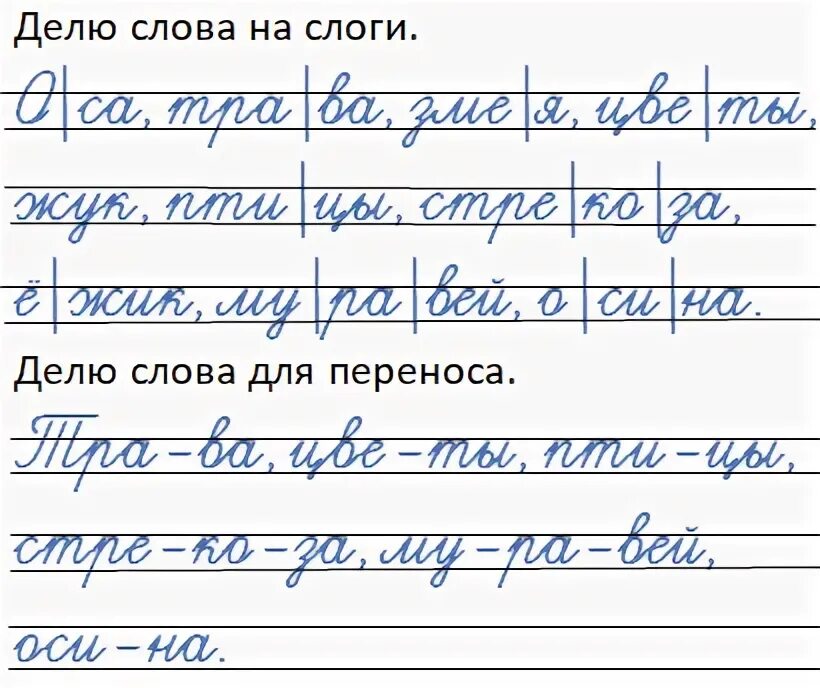 Делю слова на слоги.
О|са, тра|ва, зме|я, цве|ты,
жук, пти|цы, стре|ко|за,
ё|жик, му|ра|вей, о|си|на.
Делю слова для переноса.
Тра-ва, цве-ты, пти-цы,
стре-ко-за, му-ра-вей,
оси-на.